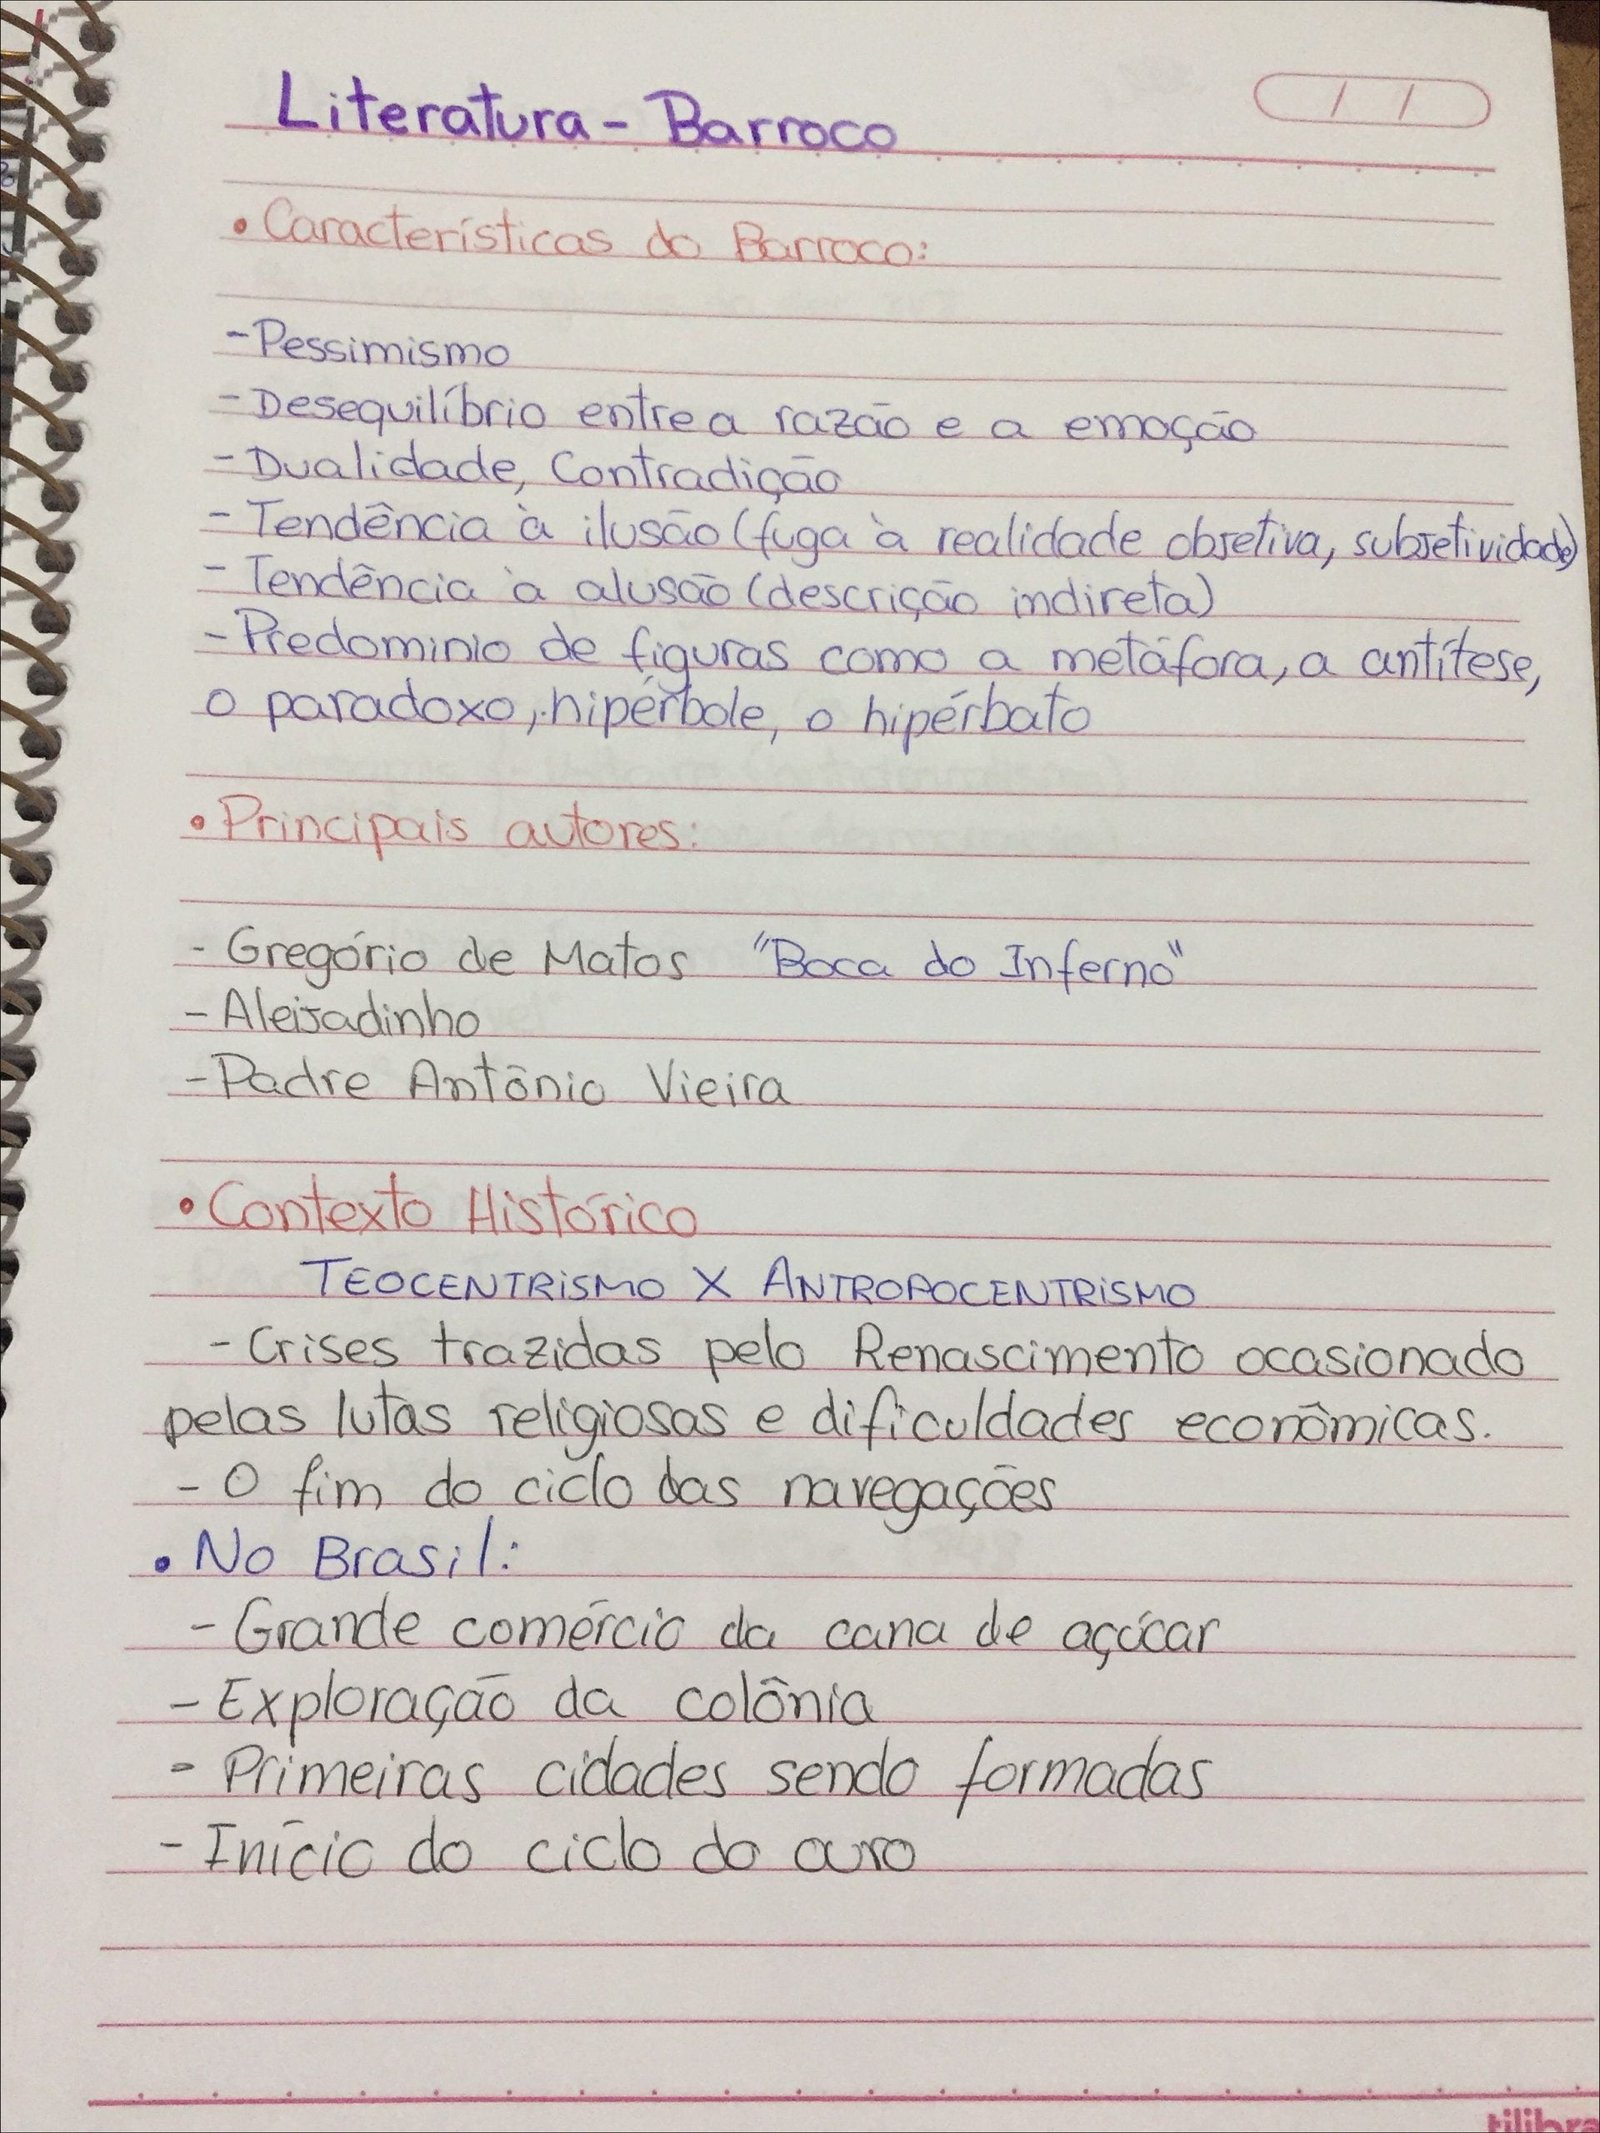 Literatura - Barroco
/ /
• Características do Barroco:
- Pessimismo
- Desequilíbrio entre a razão e a emoção
- Dualidade, Contradição
- Tendência à ilusão (fuga à realidade objetiva, subjetividade)
- Tendência à alusão (descrição indireta)
- Predominio de figuras como a metáfora, a antítese,
o paradoxo, hipérbole, o hipérbato
• Principais autores:
- Gregório de Matos "Boca do Inferno"
- Aleijadinho
- Padre Antônio Vieira
• Contexto Histórico
TEOCENTRISMO X ANTROPOCENTRISMO
- Crises trazidas pelo Renascimento ocasionado
pelas lutas religiosas e dificuldades econômicas.
- O fim do ciclo das navegações
• No Brasil:
- Grande comércio da cana de açúcar
- Exploração da colônia
- Primeiras cidades sendo formadas
- Início do ciclo do ouro
tilibra